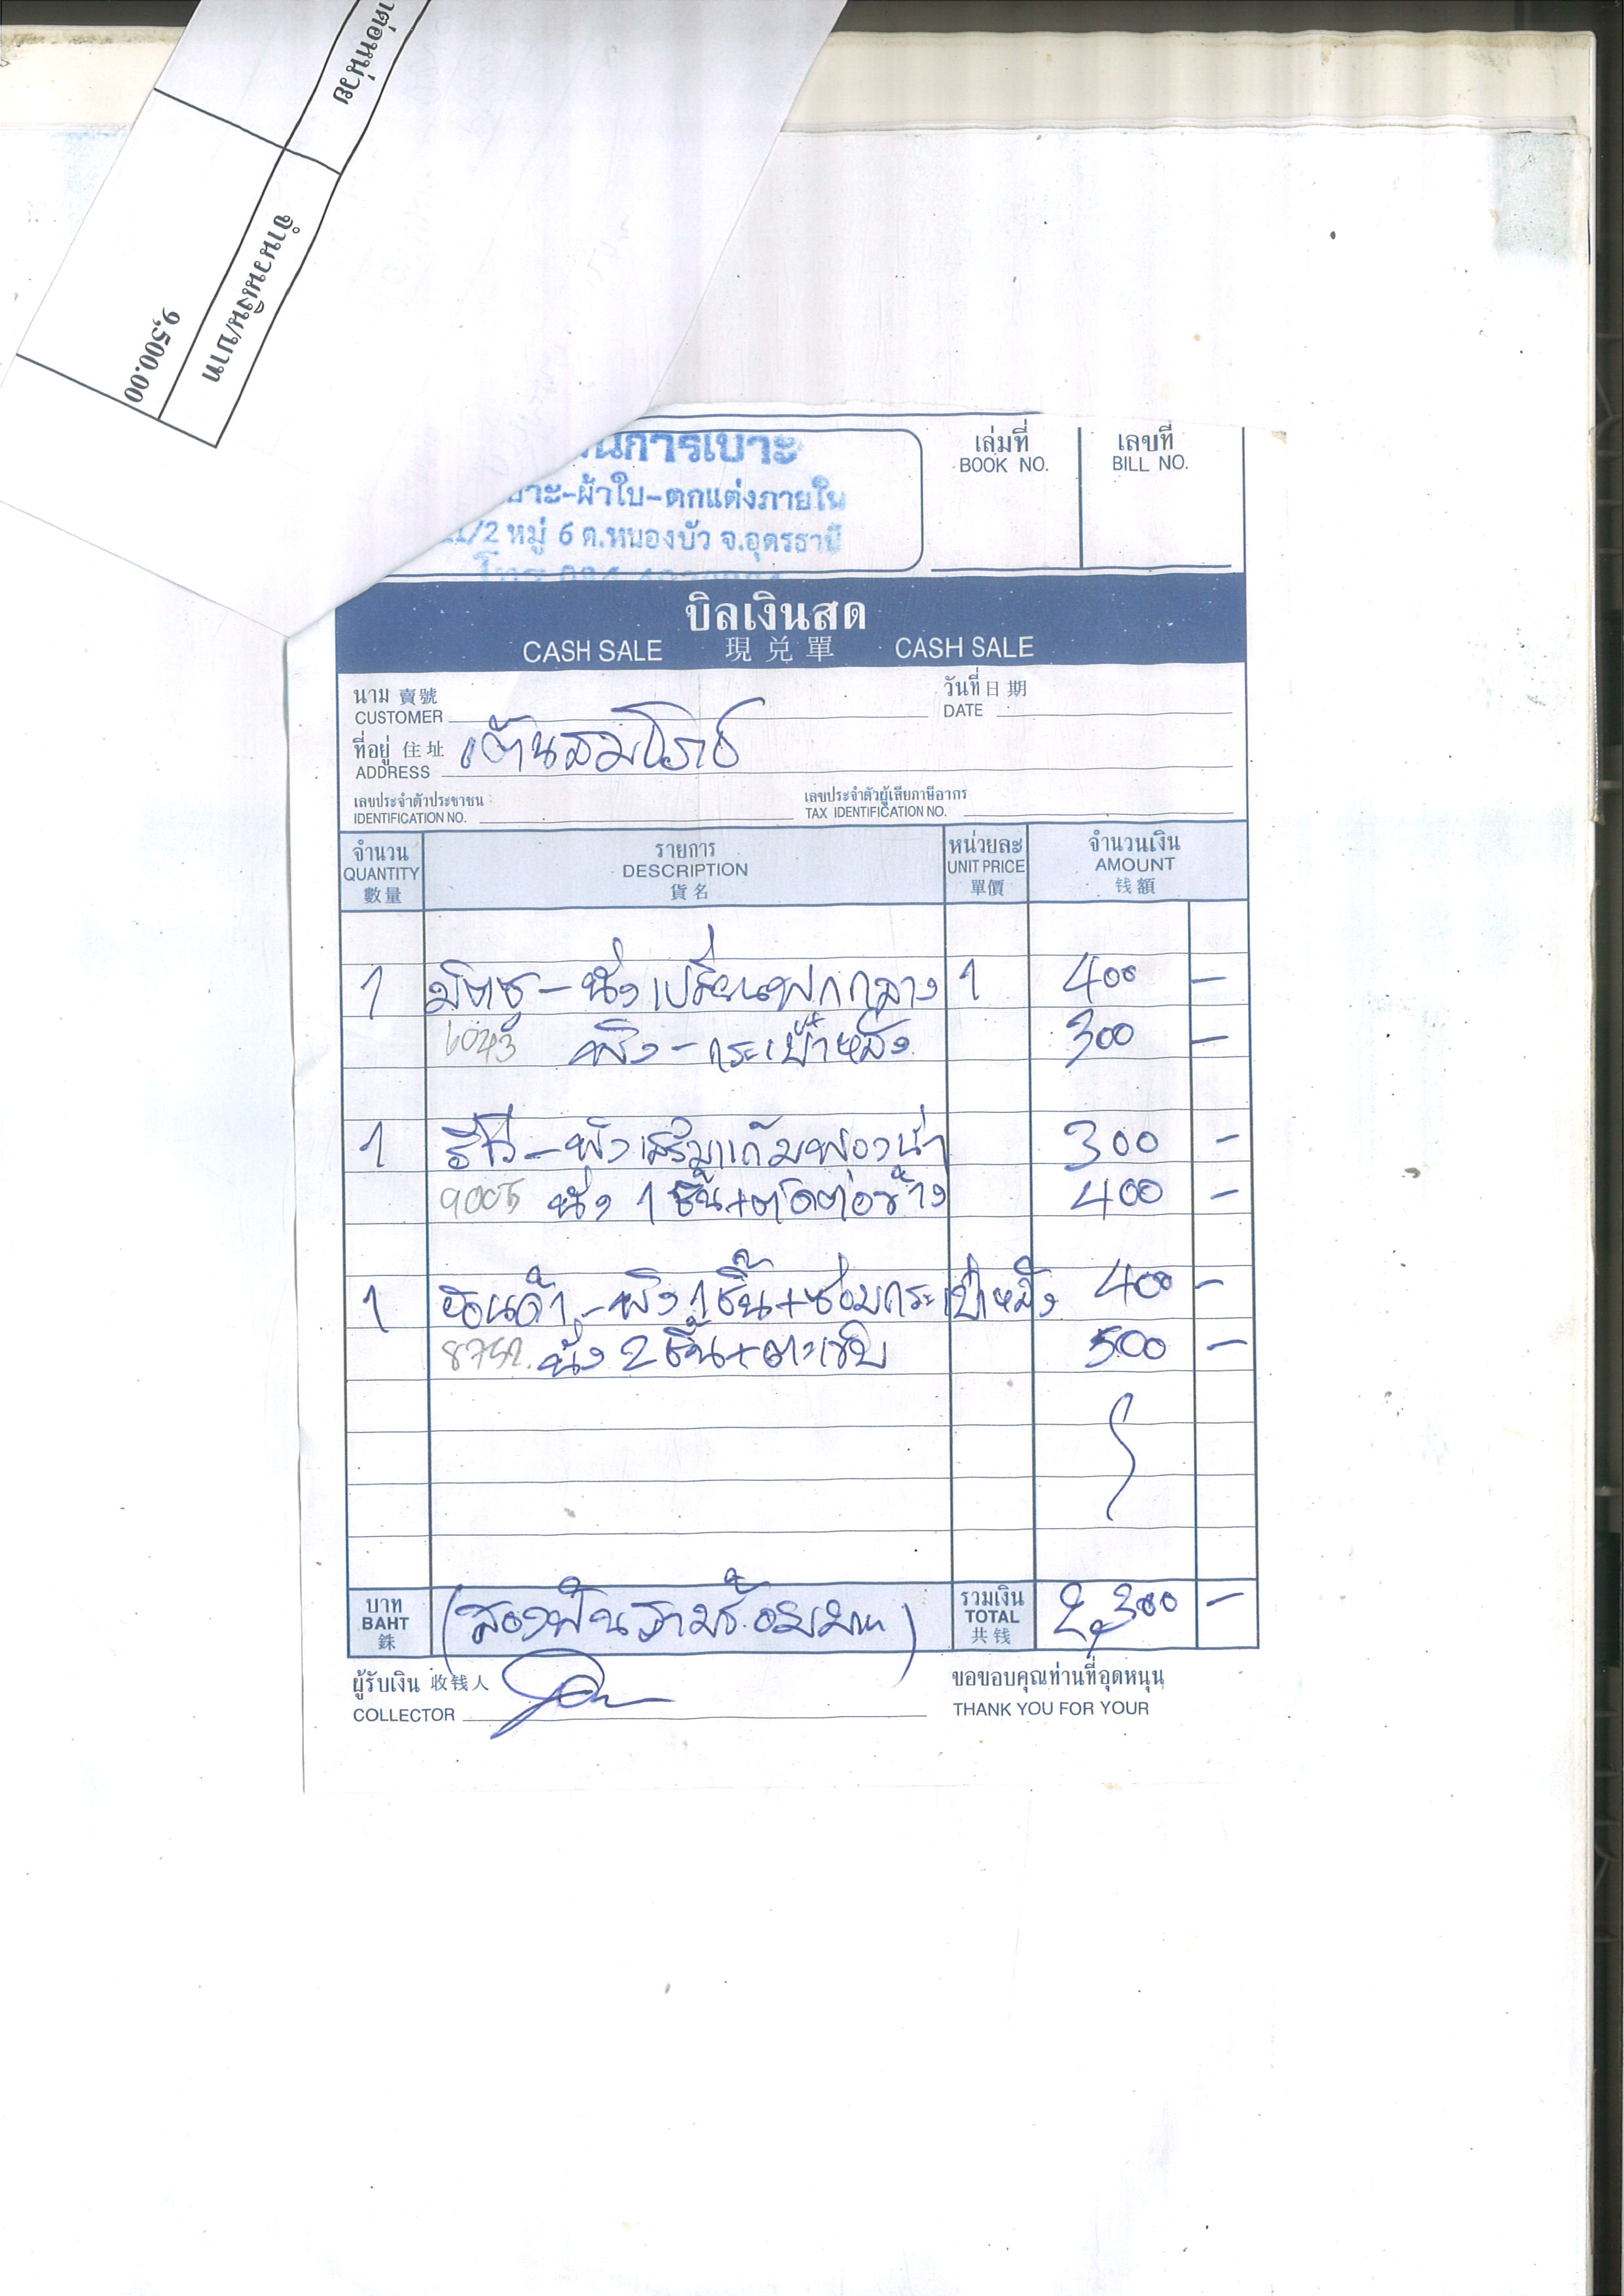 จำนวนเงิน/บาท
9,500.00
การเบาะ
เบาะ-ผ้าใบ-ตกแต่งภายใน
/2 หมู่ 6 ต.หนองบัว จ.อุดรธานี
เล่มที่
BOOK NO.
เลขที่
BILL NO.
บิลเงินสด
CASH SALE 現兑單 CASH SALE
นาม 賣號
CUSTOMER
วันที่ 日期
DATE
ที่อยู่ 住址
ADDRESS
เต๊นสมโรช์
เลขประจำตัวประชาชน
IDENTIFICATION NO.
เลขประจำตัวผู้เสียภาษีอากร
TAX IDENTIFICATION NO.
จำนวน
QUANTITY
數量
รายการ
DESCRIPTION
貨名
หน่วยละ
UNIT PRICE
單價
จำนวนเงิน
AMOUNT
钱額
1 มิตซู - นั่ง เปลี่ยนฟกกลาง 1 400 -
6043 พิง - กระเป๋าหลัง 300 -
1 รีโว่ - พิงเสริมแก้มฟองน้ำ 300 -
9005 นั่ง 1 ชิ้น + ตัดต่อข้าง 400 -
1 ฮอนด้า - พิง 1 ชิ้น + ซ่อมกระเป๋าหลัง 400 -
8752 นั่ง 2 ชิ้น + ตะเข็บ 500 -
บาท
BAHT
銖
(สองพันสามร้อยบาท)
รวมเงิน
TOTAL
共钱
2,300 -
ผู้รับเงิน 收钱人
COLLECTOR
ขอขอบคุณท่านที่อุดหนุน
THANK YOU FOR YOUR